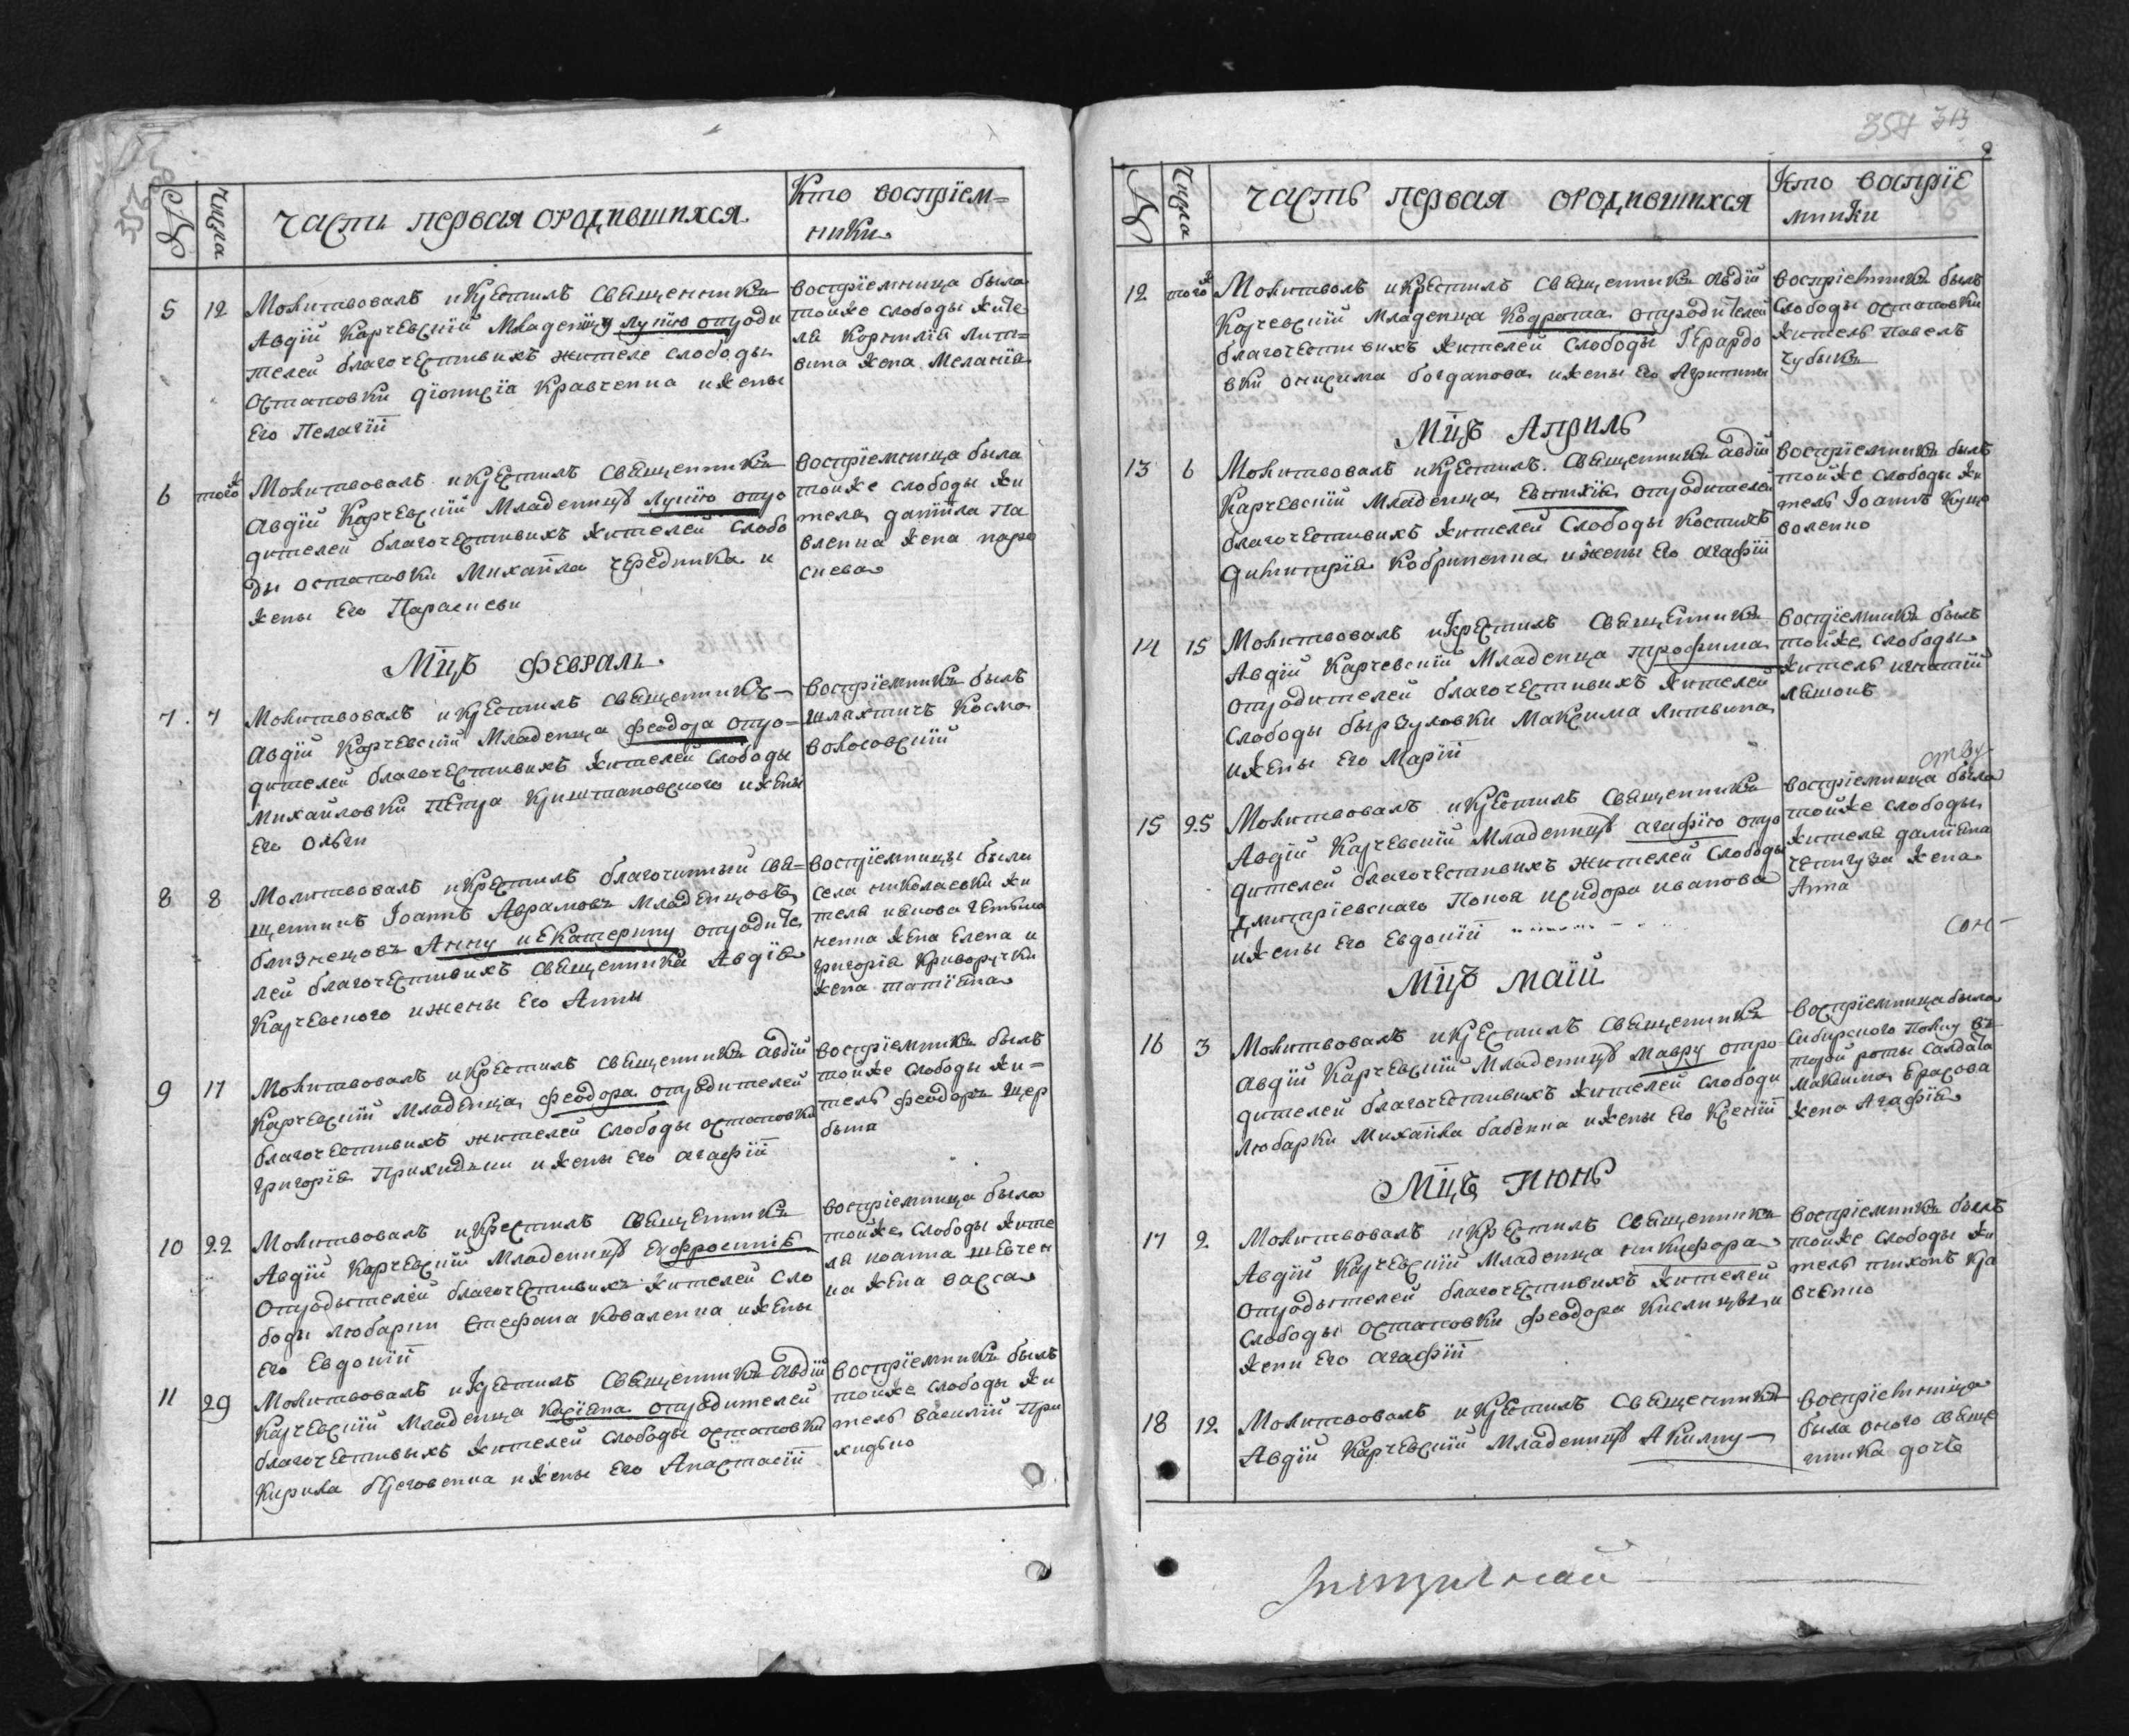 №
числа
часть первая ородившихся
Кто воспрїем=
ники
5 12
Молитвовалъ икрестилъ священникъ
Авдїй Карчевскїй младеницу Лукїю отроди
телей благочестивихъ жителе слободы
Остаповки Дїонисїа Кравченка ижены
Его Пелагїй
воспрїемница была
тойже слободы жите
ля Корнилїа Литв=
вина жена Меланїа
6 тогож
Молитвовалъ икрестилъ священникъ
Авдїй Карчевскїй младеницѣ Лукїю отро
дителей благочестивихъ жителей слобо
ды остаповки Михаила чередника и
жены Его Параскеви
воспрїемница была
тойже слободы жи
теля данїила Па
вленка жена пара
скева
Мцъ февраль
7. 7
Молитвовалъ икрестилъ священникъ
Авдїй Карчевскїй младенца феодора отро=
дителей благочестивихъ жителей слободы
Михайловки Петра Криштановского ижены
Его Олги
воспрїемникъ былъ
шляхтичъ Косма
волосовскїй
8 8
Молитвовалъ икрестилъ благочинный свя=
щенникъ Іоаннъ Аврамовъ младенцовъ
близнецовъ Анну иЕкатерину отродите
лей благочестивихъ священника Авдїа
Карчевского ижены Его Анны
воспрїемницы были
села николаевки жи
теля
ненка жена Елена и
григорїа Криворучки
жена татїана
9 17
Молитвовалъ икрестилъ священникъ авдїй
Карчевскїй младенца феодора отродителей
благочестивихъ жителей слободы остаповки
григорїа Приходки ижены Его агафїй
воспрїемникъ былъ
тойже слободы жи=
тель феодоръ щер
бина
10 22
Молитвовалъ икрестилъ священникъ
Авдїй Карчевскїй младеницѣ Ефросинїю
отродителей благочестивихъ жителей сло
боды любарки Стефана Коваленка ижены
Его Евдокїй
воспрїемница была
тойже слободы жите
ля иоанна шевчен
ка жена васса
11 29
Молитвовалъ икрестилъ священникъ авдїй
Карчевскїй младенца Касїана отродителей
благочестивыхъ жителей слободы остаповки
Кирила Бреговенка ижены Его Анастасїй
воспрїемникъ былъ
тойже слободы жи
тель василїй При
ходько
354 313
№
числа
часть первая ородившихся
Кто воспрїе
мники
12 тогож
Молитволъ икрестилъ священникъ Авдїй
Карчевскїй младенца Кодрата отродителей
благочестивихъ жителей слободы Герардо
вки онисима богданова ижены Его Агрипини
воспрїемникъ былъ
слободы остаповки
житель павелъ
чубыкъ
Мцъ Априль
13 6
Молитвовалъ икрестилъ священникъ авдїй
Карчевскїй младенца Евтихїа отродителей
благочестивихъ жителей слободы Костихъ
димитрїа Кобриненка ижены Его агафїй
воспрїемникъ былъ
тойже слободы жи
тель Іоаннъ Куце
воленко
14 15
Молитвовалъ икрестилъ священникъ
Авдїй Карчевскїй младенца трофима
отродителей благочестивихъ жителей
слободы бырзуловки Максима Литвина
ижены Его Марїй
воспрїемникъ былъ
тойже слободы
житель игнатїй
ляшокъ
15 25
Молитвовалъ икрестилъ священникъ
Авдїй Карчевскїй младеницѣ агафїю отро
дителей благочестивихъ жителей слободы
Дмитрїевского Попоя исидора иванова
ижены Его Евдокїй
воспрїемница была
тойже слободы
жителя дамїана
жена
Анна
Мцъ маїй
16 3
Молитвовалъ икрестилъ священникъ
Авдїй Карчевскїй младеницѣ Мавру отро
дителей благочестивихъ жителей слободи
любарки Михаила бабенка ижены Его Ксенїй
воспрїемница была
Сибирского полку вт
торой роты салдата
Максима Ерасова
жена Агафїа
Мцъ июнь
17 2
Молитвовалъ икрестилъ священникъ
Авдїй Карчевскїй младенца никифора
отродытелей благочестивихъ жителей
слободы остаповки феодора Кислицы и
жени Его агафїй
воспрїемникъ былъ
тойже слободы жи
тель тихонъ Кра
вченко
18 12
Молитвовалъ икрестилъ священникъ
Авдїй Карчевскїй младеницѣ Акилину
воспрїемница
была оного свяще
нника дочъ